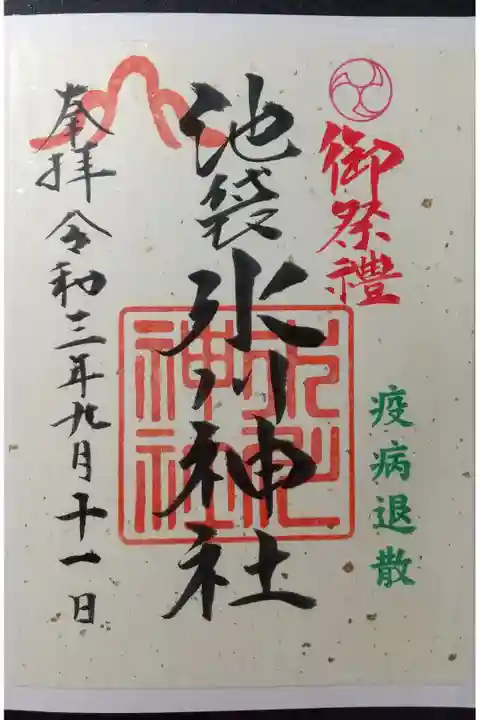 御祭禮
疫病退散
池袋氷川神社
氷川神社
奉拝 令和三年九月十一日